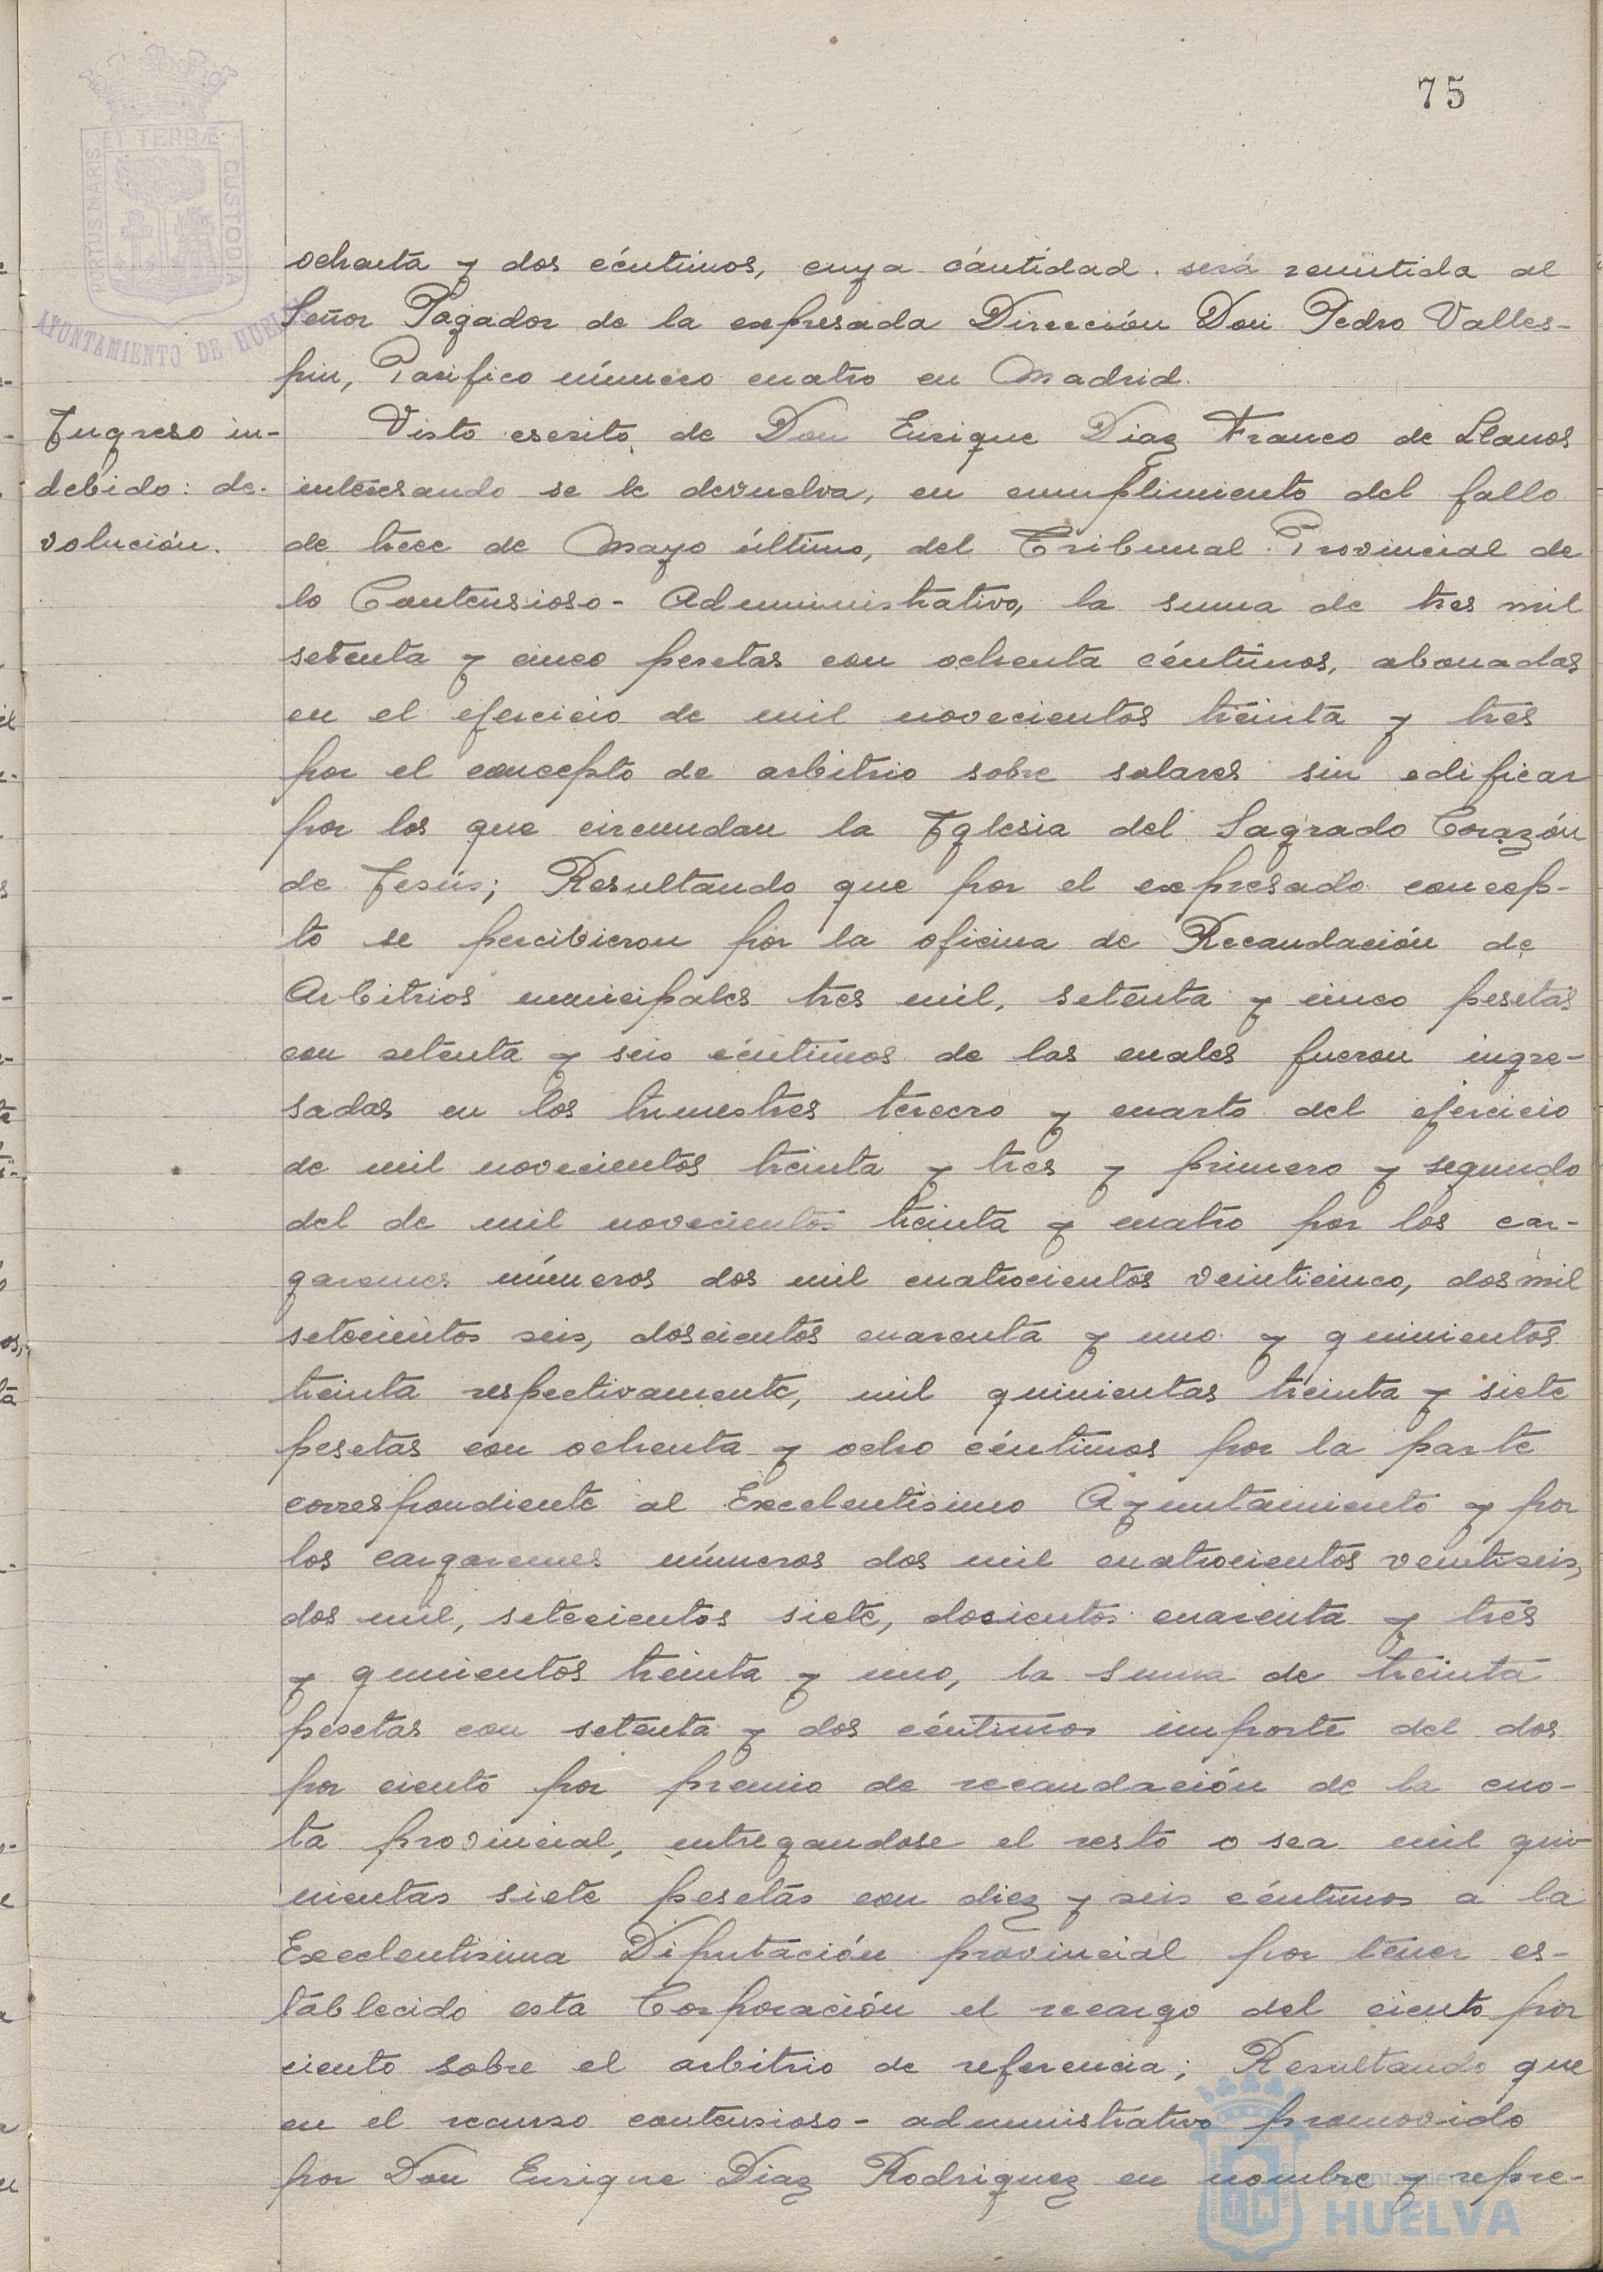 75
PORTUS MARIS ET TERRÆ CUSTODIA
AYUNTAMIENTO DE HUELVA
ochenta y dos céntimos, cuya cántidad será remitida al
Señor Pagador de la expresada Dirección Don Pedro Valles-
pin, Pacifico número cuatro en Madrid.
Ingreso in-
debido: de-
volución.
Visto escrito de Don Enrique Diaz Franco de Llanos
interesando se le devuelva, en cumplimiento del fallo
de trece de Mayo último, del Tribunal Provincial de
lo Contensioso-Administrativo, la suma de tres mil
setenta y cinco pesetas con ochenta céntimos, abonadas
en el ejercicio de mil novecientos treinta y tres
por el concepto de arbitrio sobre solares sin edificar
por los que circundan la Yglesia del Sagrado Corazón
de Jesús; Resultando que por el expresado concep-
to se percibieron por la oficina de Recaudación de
Arbitrios municipales tres mil, setenta y cinco pesetas
con setenta y seis céntimos de las cuales fueron ingre-
sadas en los trimestres tercero y cuarto del ejercicio
de mil novecientos treinta y tres y primero y segundo
del de mil novecientos treinta y cuatro por los car-
garemes números dos mil cuatrocientos veinticinco, dos mil
setecientos seis, doscientos cuarenta y uno y quinientos
treinta respectivamente, mil quinientas treinta y siete
pesetas con ochenta y ocho céntimos por la parte
correspondiente al Excelentisimo Ayuntamiento y por
los cargaremes números dos mil cuatrocientos veintiseis,
dos mil, setecientos siete, doscientos cuarenta y tres
y quinientos treinta y uno, la suma de treinta
pesetas con setenta y dos céntimos importe del dos
por ciento por premio de recaudación de la cuo-
ta provincial, entregandose el resto o sea mil qui-
nientas siete pesetas con diez y seis céntimos a la
Excelentisima Diputación provincial por tener es-
tablecido esta Corporación el recargo del ciento por
ciento sobre el arbitrio de referencia; Resultando que
en el recurso contensioso-administrativo promovido
por Don Enrique Diaz Rodriguez en nombre y repre-
Ayuntamiento
HUELVA